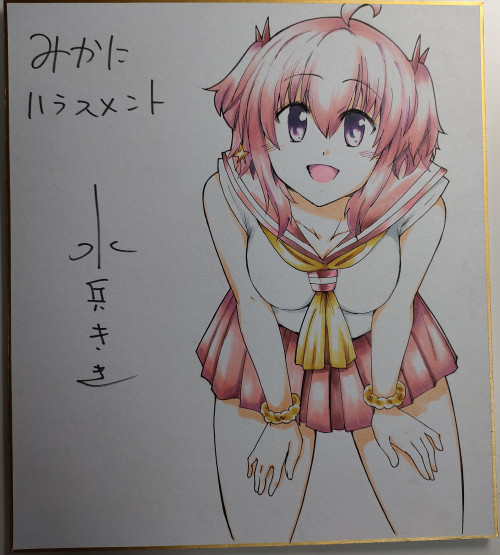 みかに
ハラスメント
水兵きき